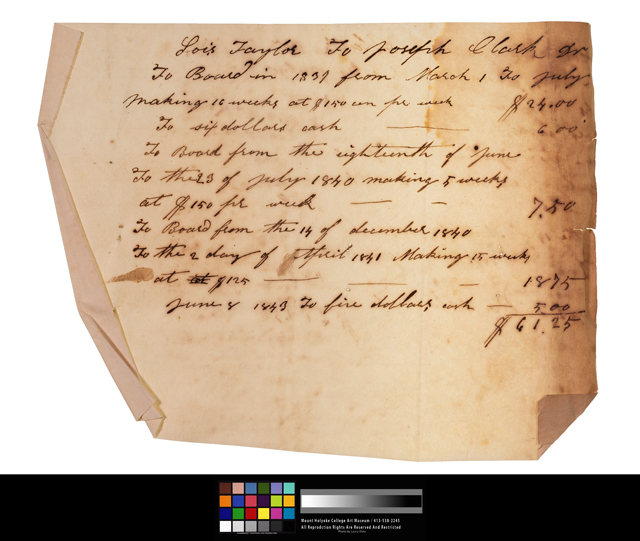 Lois Taylor To Joseph Clark Dr
To Board in 1839 from March 1 To July
making 16 weeks at $150 per week $24.00
To six dollars cash 6.00
To Board from the eighteenth of June
To the 23 of July 1840 making 5 weeks
at $150 pr week 7.50
To Board from the 14 of december 1840
To the 2 day of April 1841 Making 15 weeks
at $125 1875
June 8 1843 To five dollars cash 5.00
$61.25
Mount Holyoke College Art Museum | 413-538-2245
All Reproduction Rights Are Reserved And Restricted